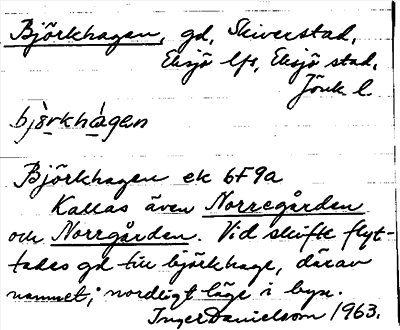 Björkhagen, gd, Skiverstad,
Eksjö lfs, Eksjö stad,
Jönk l.
bjö̀rkhàgen
Björkhagen ek 6F9a
Kallas även Norregården
och Norrgården. Vid skifte flyt-
tades gd till björkhage, därav
namnet; nordligt läge i byn.
Inger Danielsson 1963.